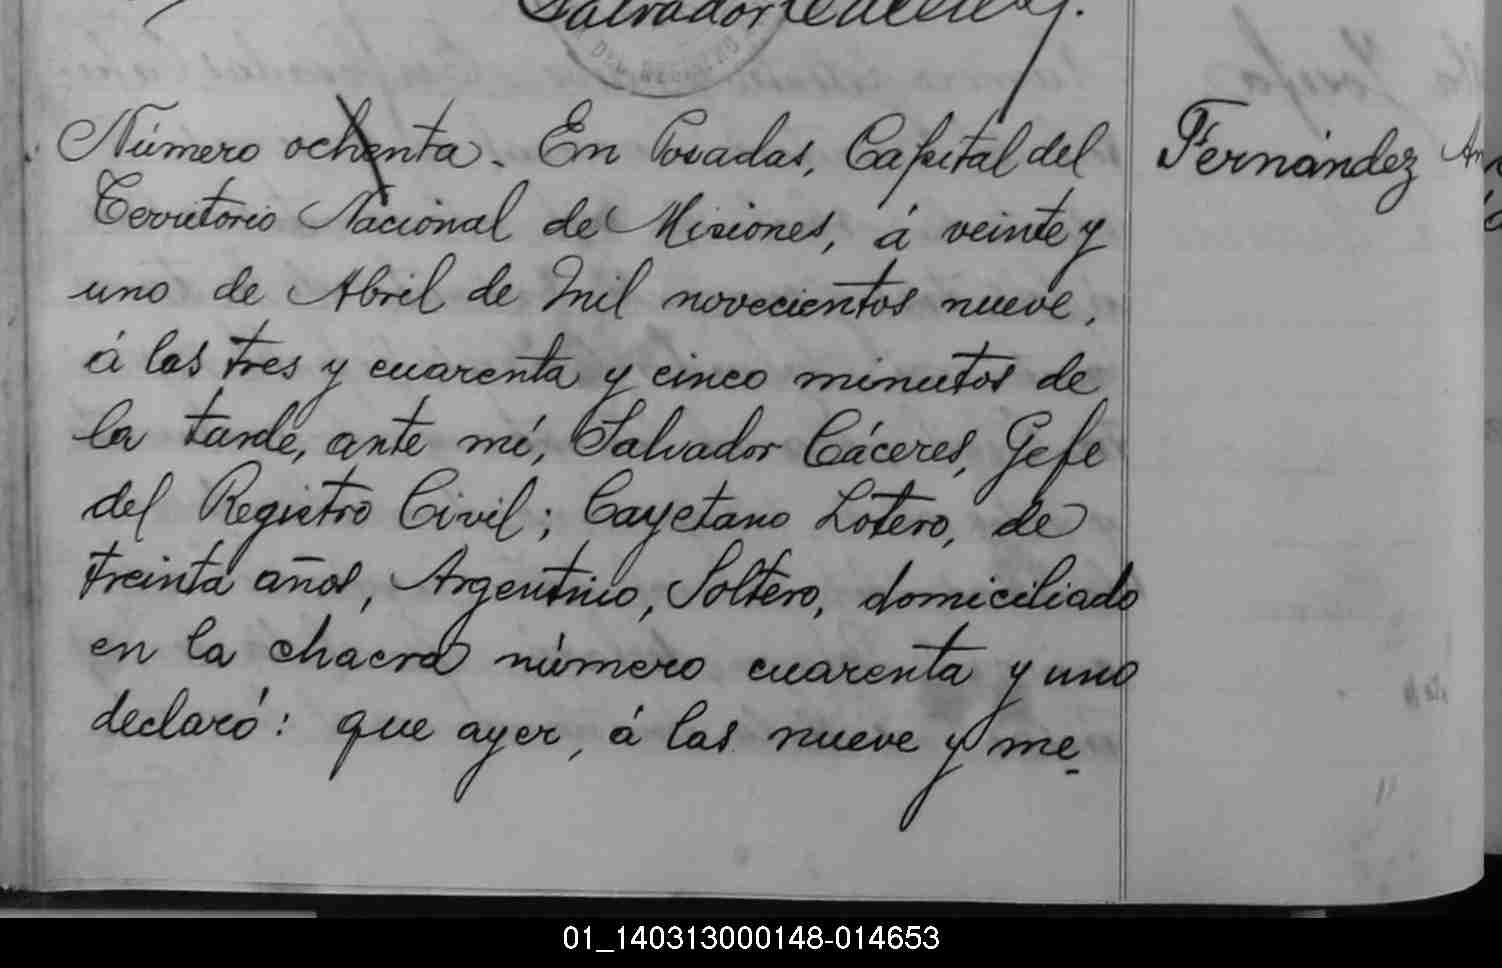 Salvador Cáceres.
DEL REGISTRO
Número ochenta. En Posadas, Capital del
Fernández
Territorio Nacional de Misiones, á veinte y
uno de Abril de Mil novecientos nueve,
á las tres y cuarenta y cinco minutos de
la tarde, ante mí, Salvador Cáceres, Gefe
del Registro Civil; Cayetano Lotero, de
treinta años, Argentino, Soltero, domiciliado
en la chacra número cuarenta y uno
declaró: que ayer, á las nueve y me-
01_140313000148-014653